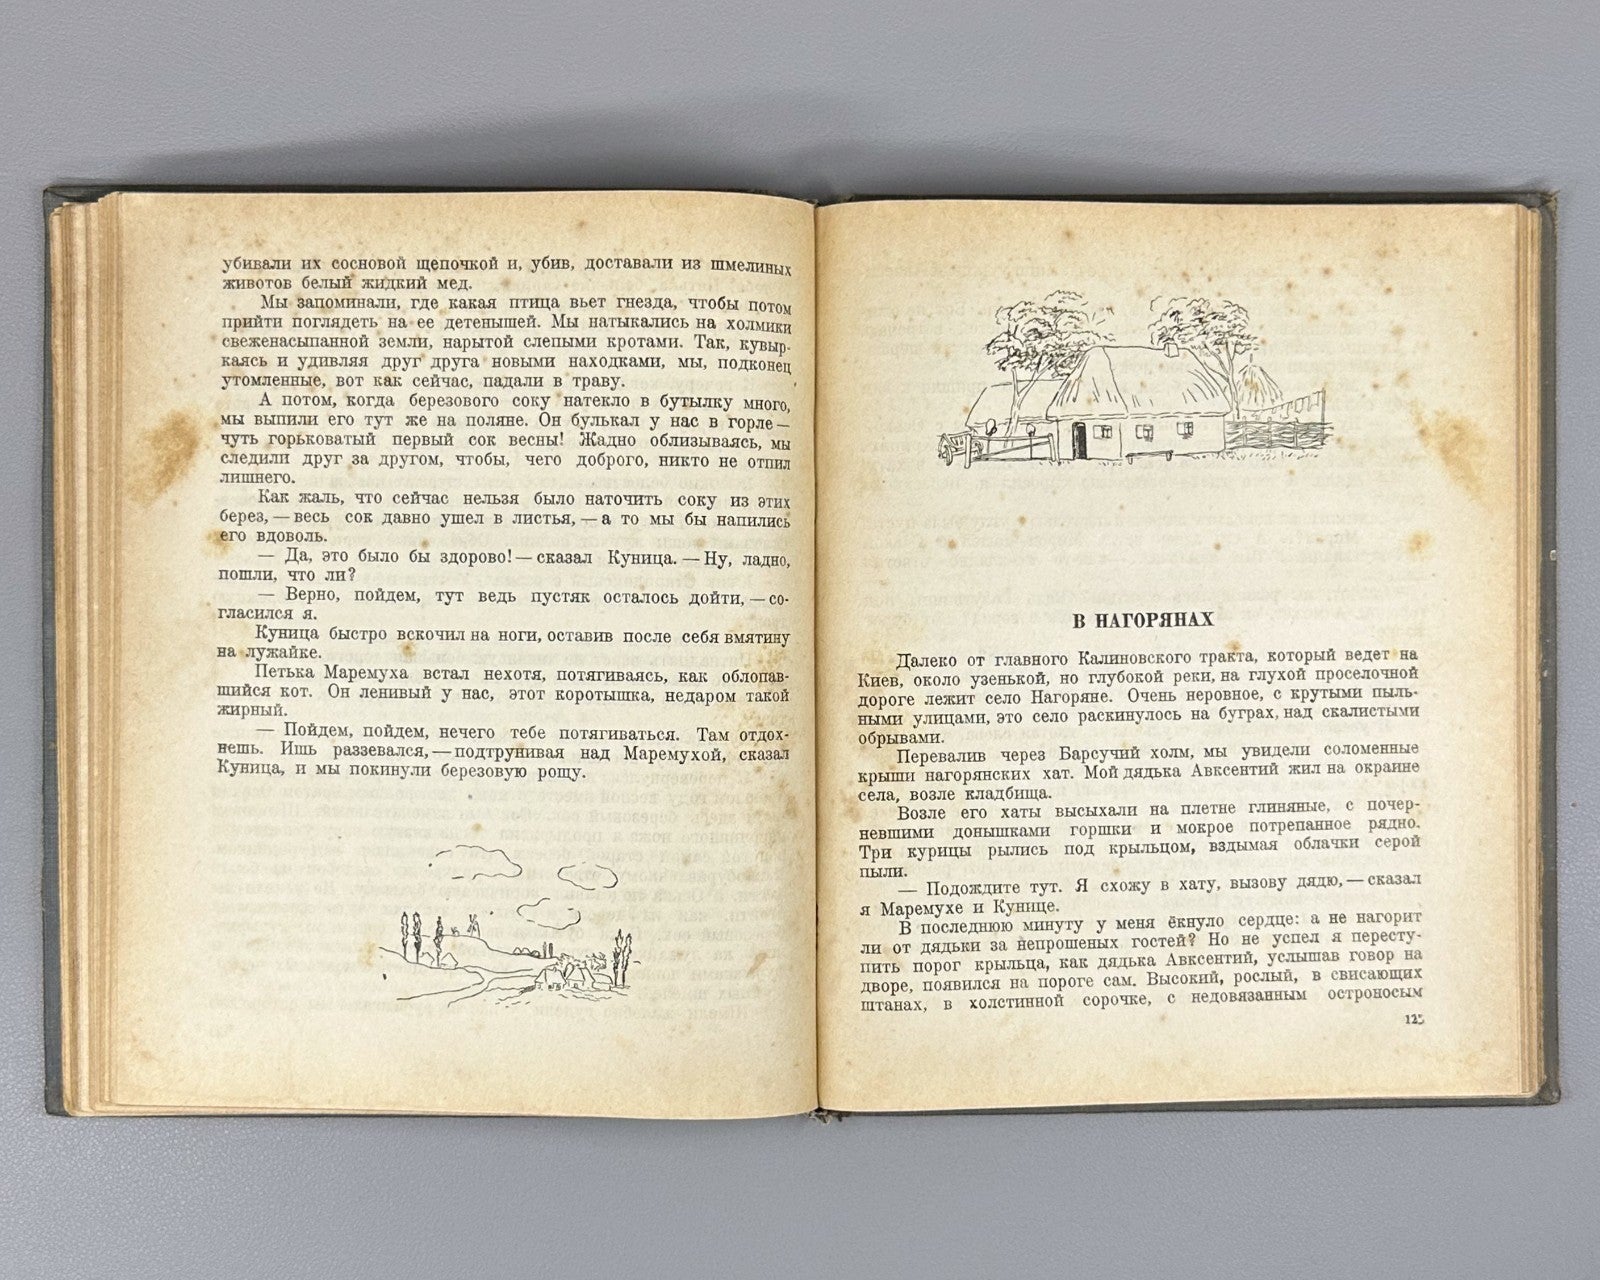 убивали их сосновой щепочкой и, убив, доставали из шмелиных
животов белый жидкий мед.
Мы запоминали, где какая птица вьет гнезда, чтобы потом
прийти поглядеть на ее детенышей. Мы натыкались на холмики
свеженасыпанной земли, нарытой слепыми кротами. Так, кувыр-
каясь и удивляя друг друга новыми находками, мы, подконец
утомленные, вот как сейчас, падали в траву.
А потом, когда березового соку натекло в бутылку много,
мы выпили его тут же на поляне. Он булькал у нас в горле —
чуть горьковатый первый сок весны! Жадно облизываясь, мы
следили друг за другом, чтобы, чего доброго, никто не отпил
лишнего.
Как жаль, что сейчас нельзя было наточить соку из этих
берез, — весь сок давно ушел в листья, — а то мы бы напились
его вдоволь.
— Да, это было бы здорово! — сказал Куница. — Ну, ладно,
пошли, что ли?
— Верно, пойдем, тут ведь пустяк осталось дойти, — со-
гласился я.
Куница быстро вскочил на ноги, оставив после себя вмятину
на лужайке.
Петька Маремуха встал нехотя, потягиваясь, как облопав-
шийся кот. Он ленивый у нас, этот коротышка, недаром такой
жирный.
— Пойдем, пойдем, нечего тебе потягиваться. Там отдох-
нешь. Ишь раззевался, — подтрунивая над Маремухой, сказал
Куница, и мы покинули березовую рощу.
В НАГОРЯНАХ
Далеко от главного Калиновского тракта, который ведет на
Киев, около узенькой, но глубокой реки, на глухой проселочной
дороге лежит село Нагоряне. Очень неровное, с крутыми пыль-
ными улицами, это село раскинулось на буграх, над скалистыми
обрывами.
Перевалив через Барсучий холм, мы увидели соломенные
крыши нагорянских хат. Мой дядька Авксентий жил на окраине
села, возле кладбища.
Возле его хаты высыхали на плетне глиняные, с почер-
невшими донышками горшки и мокрое потрепанное рядно.
Три курицы рылись под крыльцом, вздымая облачки серой
пыли.
— Подождите тут. Я схожу в хату, вызову дядю, — сказал
я Маремухе и Кунице.
В последнюю минуту у меня ёкнуло сердце: а не нагорит
ли от дядьки за непрошеных гостей? Но не успел я пересту-
пить порог крыльца, как дядька Авксентий, услышав говор на
дворе, появился на пороге сам. Высокий, рослый, в свисающих
штанах, в холстинной сорочке, с недовязанным остроносым
125